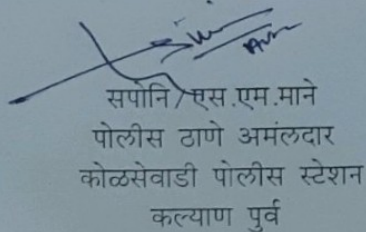 सपोनि/एस.एम.माने
पोलीस ठाणे अमंलदार
कोळसेवाडी पोलीस स्टेशन
कल्याण पुर्व